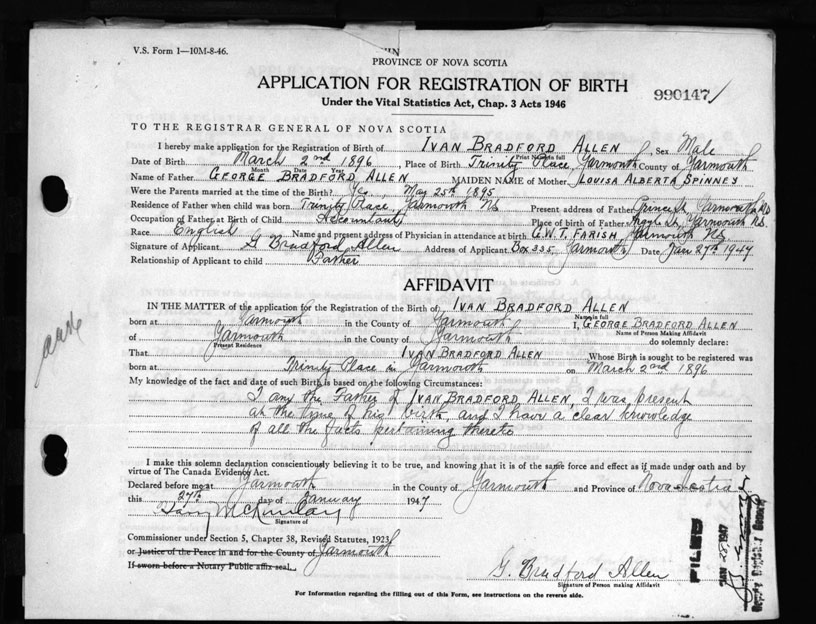 V.S. Form 1—10M-8-46.
PROVINCE OF NOVA SCOTIA
APPLICATION FOR REGISTRATION OF BIRTH
Under the Vital Statistics Act, Chap. 3 Acts 1946
990147
TO THE REGISTRAR GENERAL OF NOVA SCOTIA
I hereby make application for the Registration of Birth of IVAN BRADFORD ALLEN, Sex Male
Print Name in full
Date of Birth March 2nd 1896, Place of Birth Trinity Place, Yarmouth County of Yarmouth
Month Date Year
Name of Father GEORGE BRADFORD ALLEN MAIDEN NAME of Mother LOUISA ALBERTA SPINNEY
Were the Parents married at the time of the Birth? Yes, May 25th 1895
Residence of Father when child was born Trinity Place, Yarmouth NS Present address of Father Prince St Yarmouth NS
Occupation of Father at Birth of Child Accountant Place of birth of Father Yarmouth NS.
Race English Name and present address of Physician in attendance at birth G.W.T. FARISH Yarmouth NS.
Signature of Applicant G Bradford Allen Address of Applicant Box 335 Yarmouth Date Jan 27th 1947.
Relationship of Applicant to child Father
AFFIDAVIT
IN THE MATTER of the application for the Registration of the Birth of IVAN BRADFORD ALLEN
Name in full
born at Yarmouth in the County of Yarmouth I, GEORGE BRADFORD ALLEN
Name of Person Making Affidavit
of Yarmouth in the County of Yarmouth do solemnly declare:
Present Residence
That IVAN BRADFORD ALLEN Whose Birth is sought to be registered was
born at Trinity Place in Yarmouth on March 2nd 1896
My knowledge of the fact and date of such Birth is based on the following Circumstances:
I am the Father of IVAN BRADFORD ALLEN, I was present
at the time of his birth, and I have a clear knowledge
of all the facts pertaining thereto
I make this solemn declaration conscientiously believing it to be true, and knowing that it is of the same force and effect as if made under oath and by
virtue of The Canada Evidence Act.
Declared before me at Yarmouth in the County of Yarmouth and Province of Nova Scotia
this 27th day of January 1947
Signature of
Commissioner under Section 5, Chapter 38, Revised Statutes, 1923
or Justice of the Peace in and for the County of Yarmouth
If sworn before a Notary Public affix seal.
G. Bradford Allen
Signature of Person making Affidavit
FILED
JAN 28 1947
For Information regarding the filling out of this Form, see instructions on the reverse side.